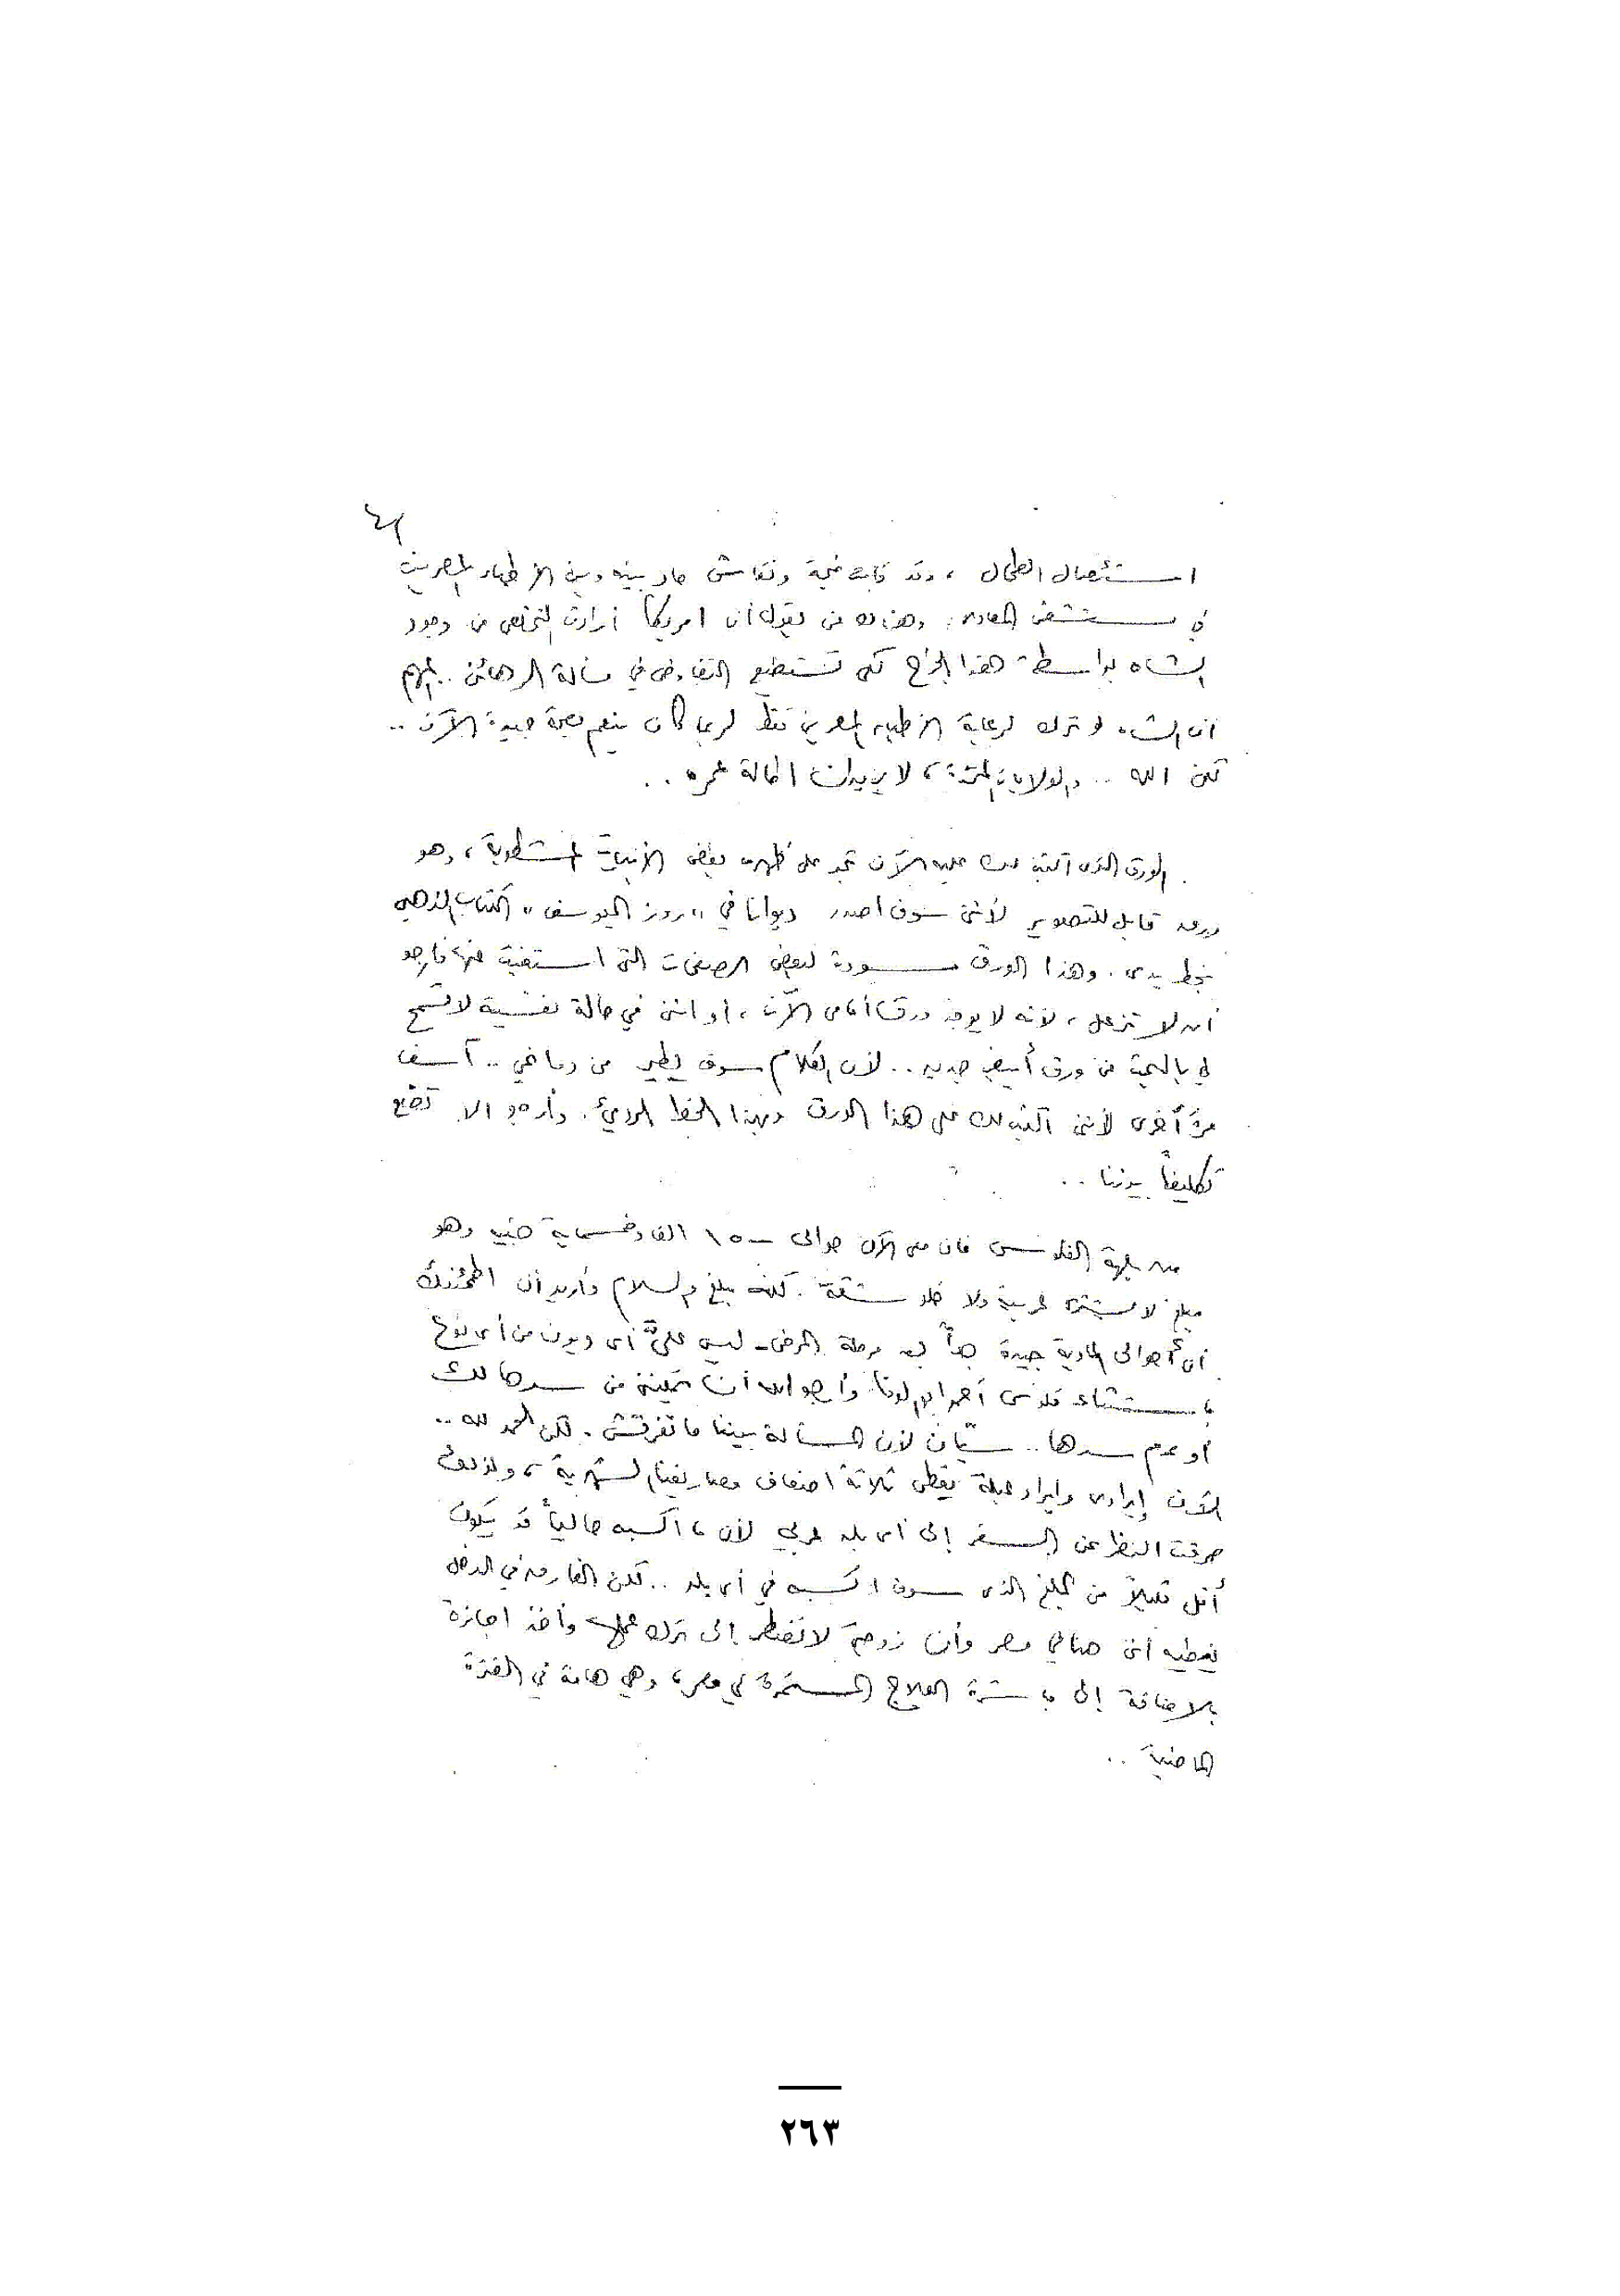 استئصال الطحال ، وقد قامت ضجة ونقاش حاد بينه وبين الأطباء المصريين
في مستشفى المعادى . وهناك من يقول أن امريكا أرادت التخلص من وجود
الشاه بواسطة هذا الجراح لكى تستطيع التفاوض في مسألة الرهائن .. المهم
ان الشاه لو ترك لرعاية الأطباء المصريين فقط لربما كان ينعم بصحة جيدة الآن ..
لكن الله .. والولايات المتحدة ، لا يريدان اطالة عمره ..
الورق الذى اكتب لك عليه الآن تجد على ظهره بعض الأبيات المشطوبة ، وهو
ورق قابل للتصوير لأننى سوف اصدر ديوانا في " روز اليوسف " الكتاب الذهبى
بخط يدى . وهذا الورق مسودة لبعض الصفحات التى استغنيت عنها فارجو
أن لا تزعل ، لأنه لا يوجد ورق أمامى الآن ، أو اننى في حالة نفسية لا تسمح
لي بالبحث عن ورق أبيض جديد .. لأن الكلام سوف يطير من دماغي .. آسف
مرة أخرى لأننى اكتب لك على هذا الورق وبهذا الخط الردئ . وأرجو الا تضع
تكليفاً بيننا ..
من جهة الفلوس فان معى الآن حوالى ١٥٠٠ الف وخمسماية جنيه وهو
مبلغ لا يشترى عربية ولا خلو شقة . لكنه مبلغ والسلام وأريد أن اطمئنك
أن أحوالى المادية جيدة جداً بعد مرحلة المرض - ليس علىَّ أى ديون من أى نوع
باستثناء فلوس أحمد ابراهيم وأرجو الله أن يمكننى من سدها لك
أو عدم سدها .. سيّان لأن المسألة بيننا ما تفرقش . لكن الحمد لله ..
الآن إيرادى وايراد عبلة يغطى ثلاثة اضعاف مصاريفنا الشهرية ، ولذلك
صرفت النظر عن السفر إلى أى بلد عربي لأن ما اكسبه حالياً قد يكون
أقل قليلاً من المبلغ الذى سوف اكسبه في أى بلد .. لكن الفارق في الدخل
يغطيه أنى هنا في مصر وأن زوجتى لا تضطر إلى ترك عملها وأخذ اجازة
بالاضافة إلى مباشرة العلاج المستمرة في مصر ، وهي هامة في الفترة
الماضية ..
٢٦٣